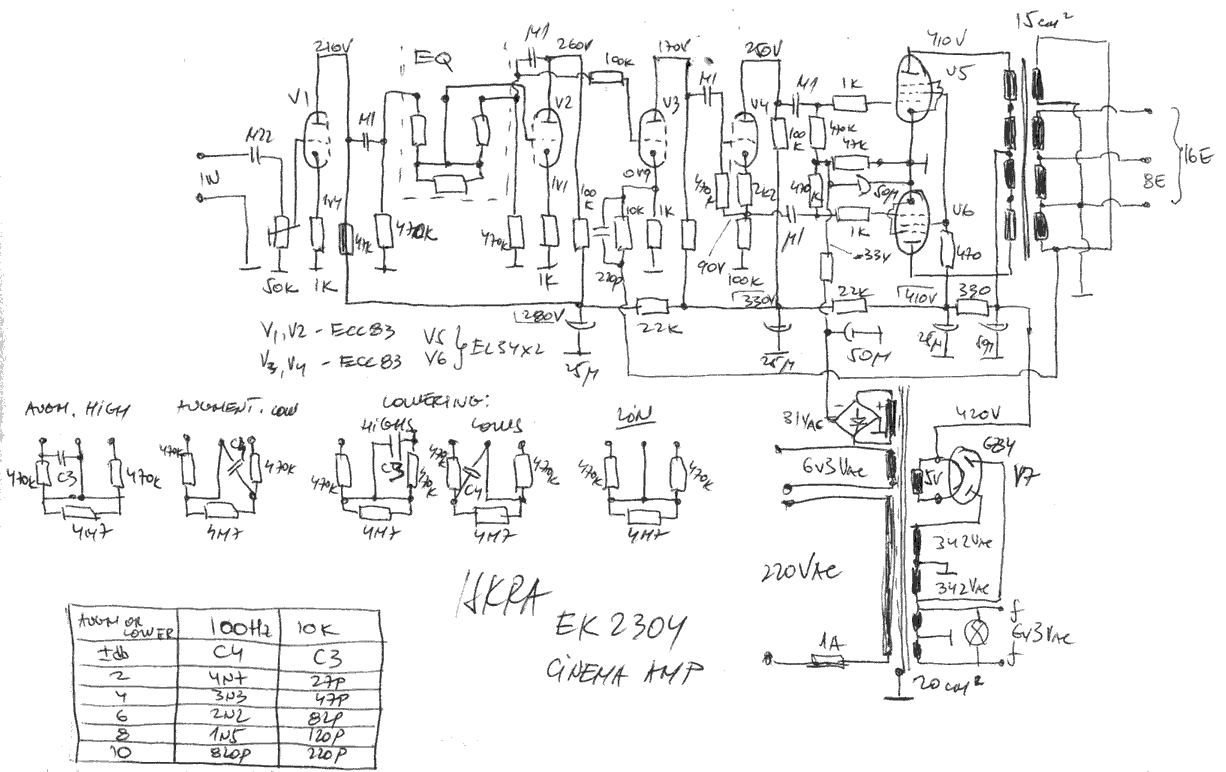 15cm²
210V
EQ
M1
260V
100K
170V
M1
250V
410V
V5
V1
M22
M1
V2
V3
V4
M1
1K
100K
470K
47K
IN
1V4
1V1
0V9
470K
2K2
470K
50M
V6
16E
8E
50K
1K
47K
470K
470K
1K
100K
10K
1K
220p
90V
100K
M1
1K
-33V
470
280V
22K
330V
22K
410V
330
25M
25M
50M
25M
50M
V1, V2 - ECC83
V3, V4 - ECC83
V5
V6
EL34x2
AUGM. HIGH
AUGMENT. LOW
LOWERING:
HIGHS
LOWS
LIN
470K
C3
470K
4M7
470K
C4
470K
4M7
470K
C3
470K
4M7
470K
C4
470K
4M7
470K
470K
4M7
31VAC
6V3VAC
220VAC
1A
420V
5V
GZ34
V7
342VAC
342VAC
f
6V3VAC
f
20cm²
ISKRA
EK2304
CINEMA AMP
AUGM OR LOWER 100Hz 10K
±db C4 C3
2 4N7 27P
4 3N3 47P
6 2N2 82P
8 1N5 120P
10 820P 220P